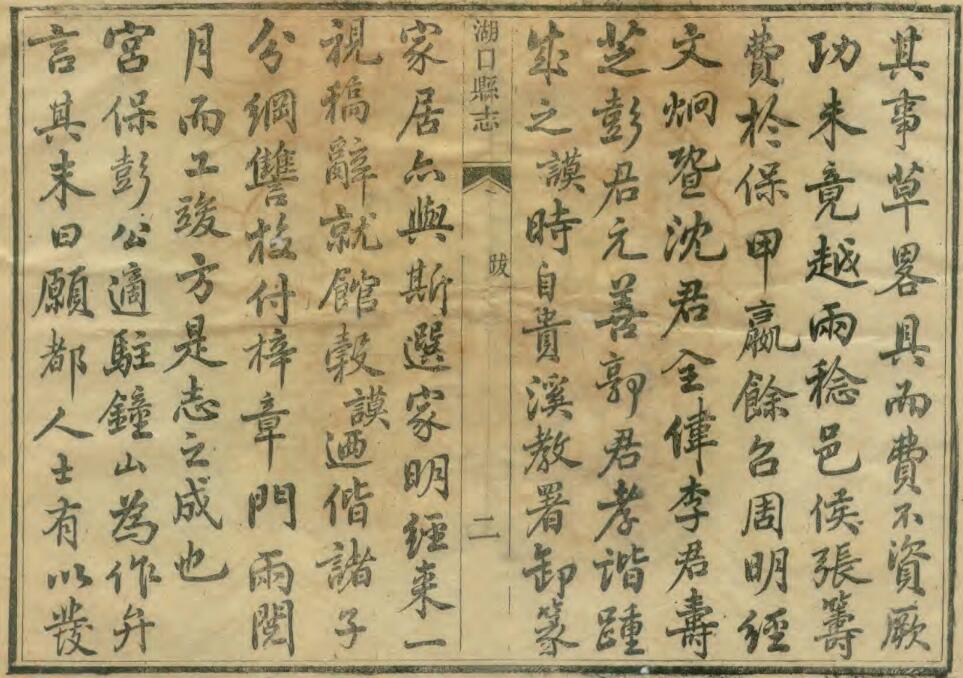 其事草畧具而費不資厥
功未竟越兩稔邑侯張籌
費於保甲贏餘召周明經
文炯暨沈君全偉李君壽
芝彭君元善郭君孝谐踵
成之謨時自貴溪教署卸篆
湖口縣志
跋
二
家居亦與斯選家明經來一
視稿辭就館穀謨迺偕諸子
分綱讐校付梓章門兩閱
月而工竣方是志之成也
宮保彭公適駐鐘山為作弁
言其末曰願都人士有以發